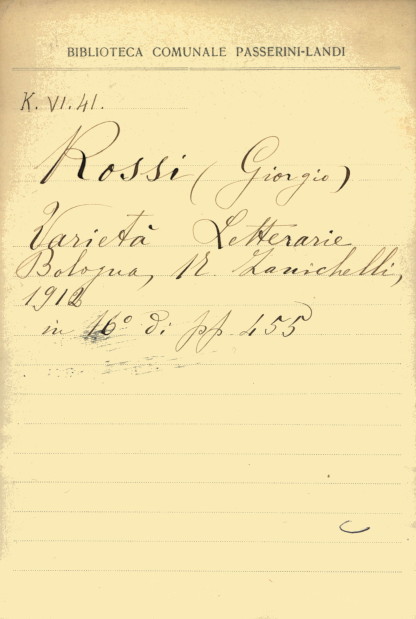 BIBLIOTECA COMUNALE PASSERINI-LANDI
K. VI. 41.
Rossi (Giorgio)
Varietà Letterarie
Bologna, N. Zanichelli,
1912
in 16° di pp 455